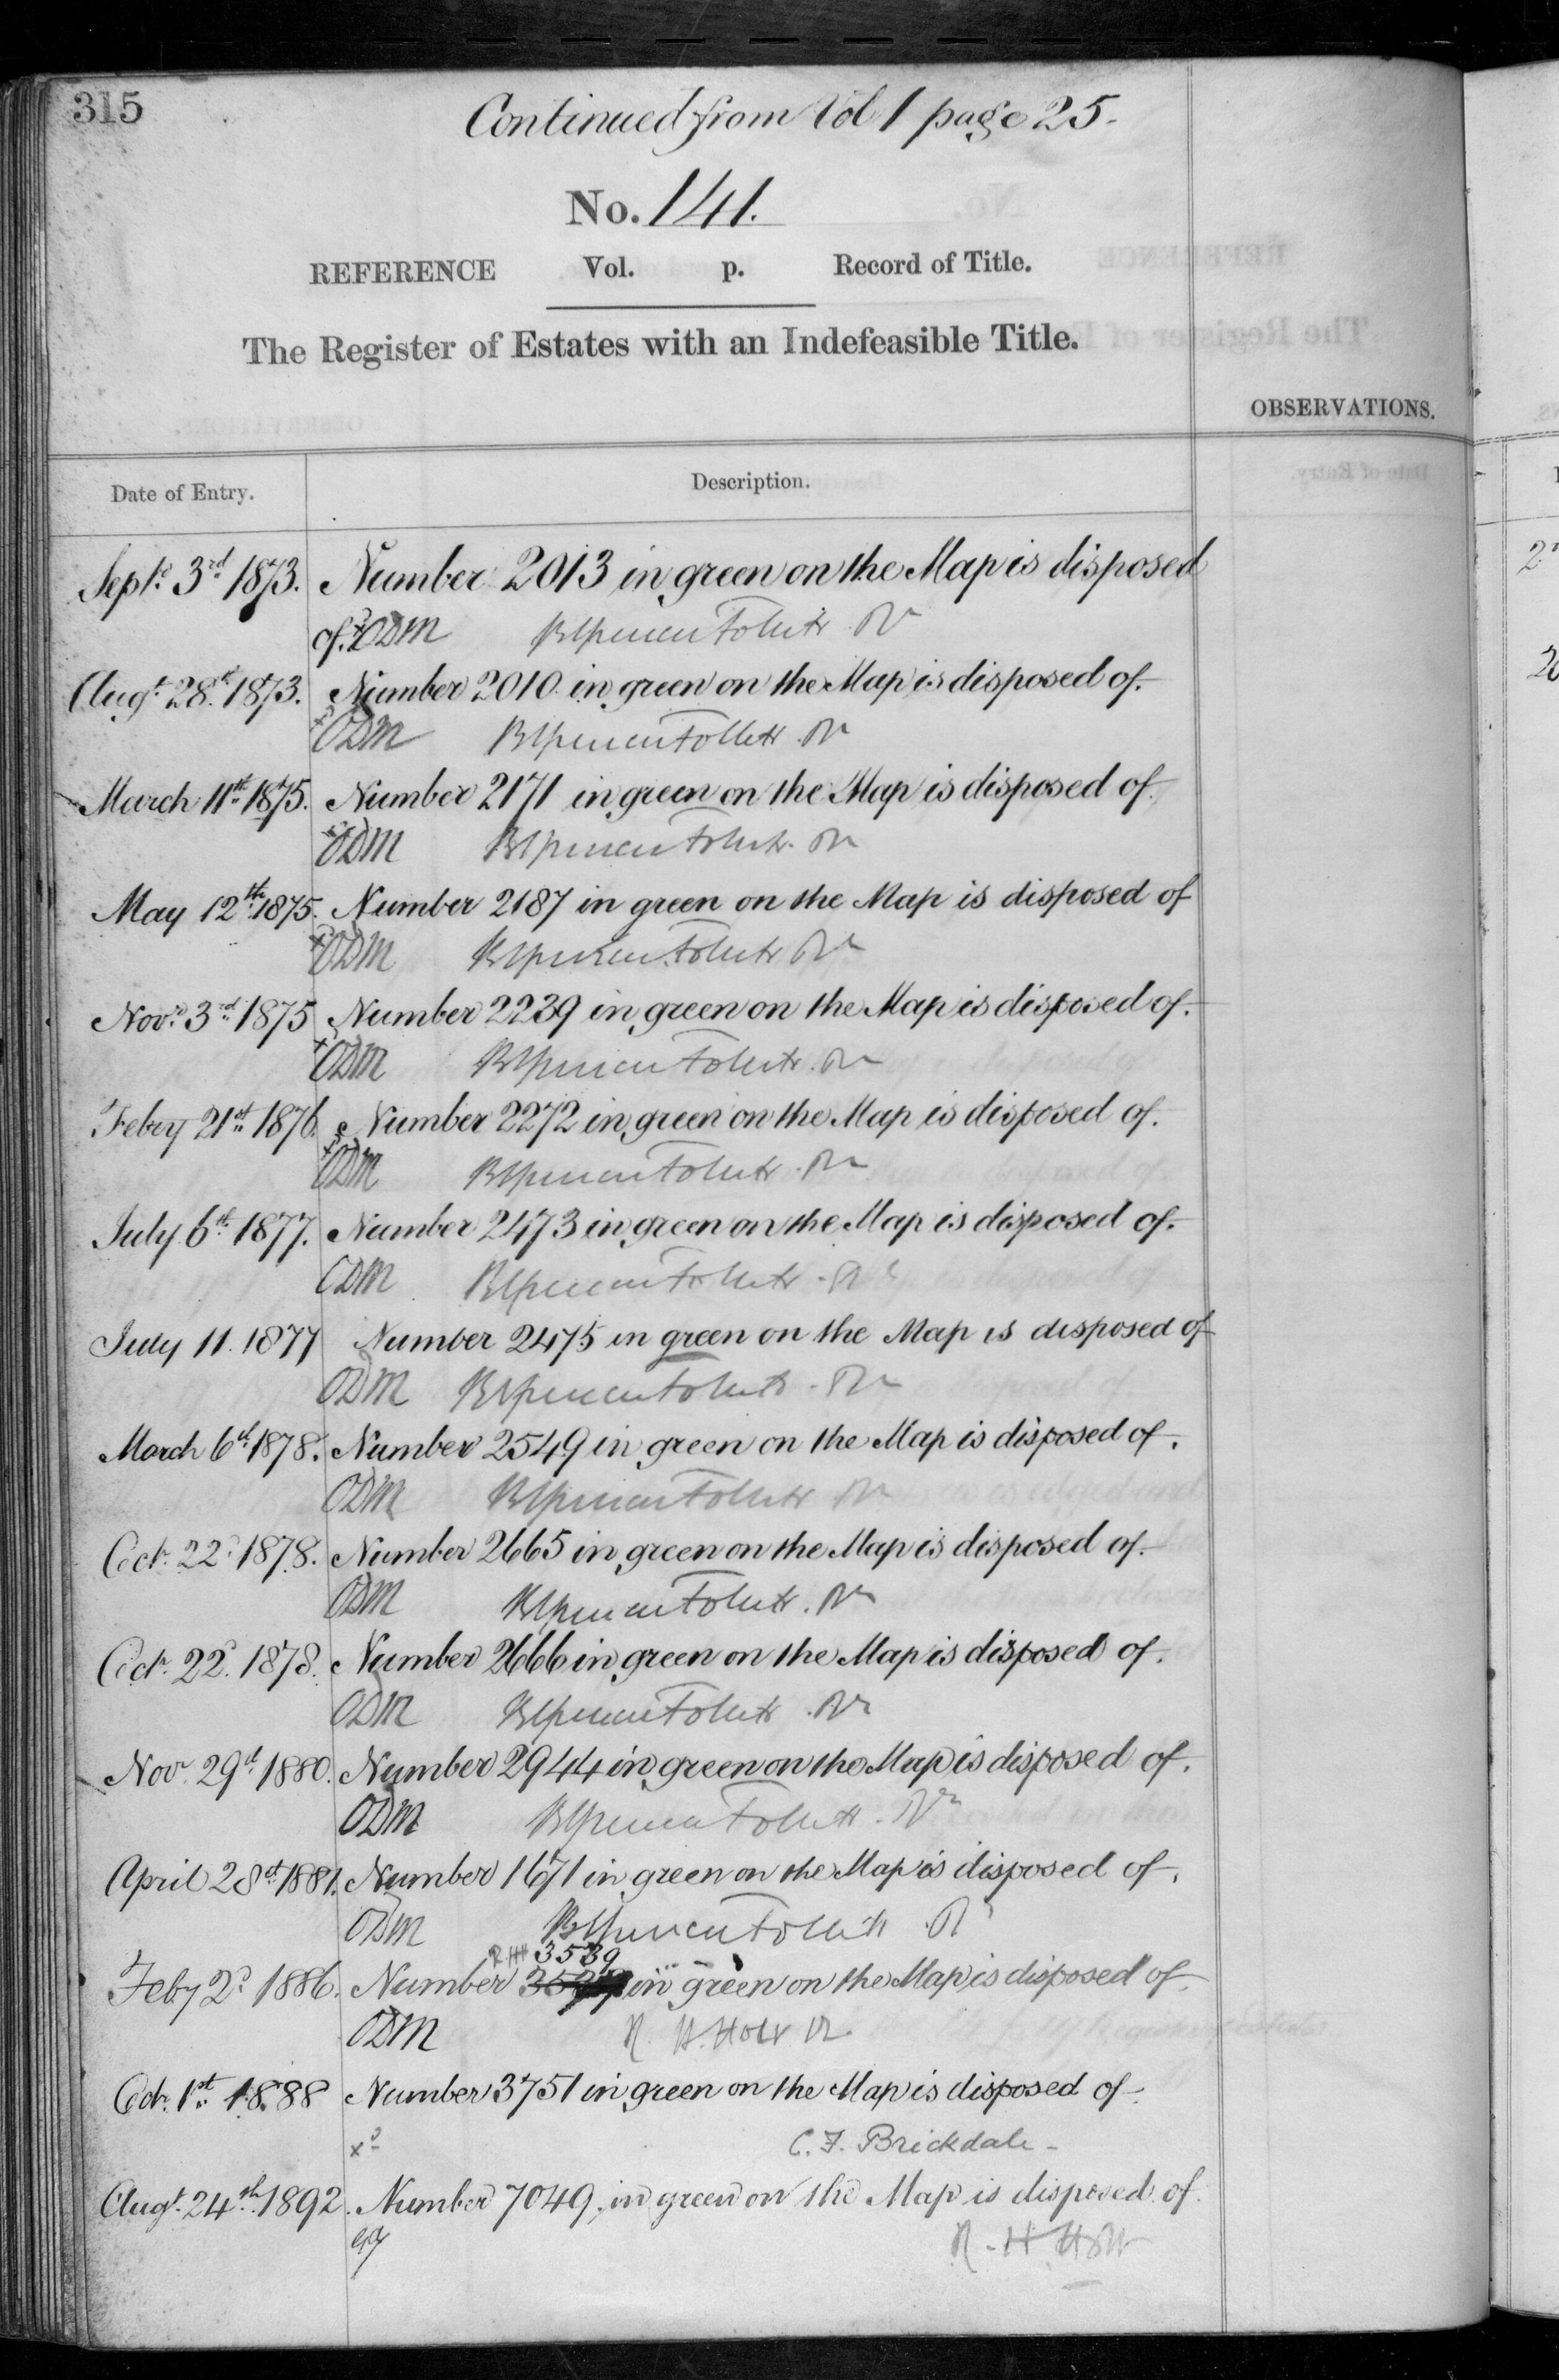 315
Continued from Vol 1 page 25.
No. 141.
REFERENCE Vol. p. Record of Title.
The Register of Estates with an Indefeasible Title.
OBSERVATIONS.
Date of Entry. Description.
Sept. 3rd 1873. Number 2013 in green on the Map is disposed
of. ODM
Augt. 28th 1873. Number 2010 in green on the Map is disposed of.
ODM
March 11th 1875. Number 2171 in green on the Map is disposed of.
ODM
May 12th 1875. Number 2187 in green on the Map is disposed of
ODM
Novr. 3rd 1875 Number 2239 in green on the Map is disposed of.
ODM
Febry 21st 1876. Number 2272 in green on the Map is disposed of.
ODM
July 6th 1877. Number 2473 in green on the Map is disposed of.
ODM
July 11. 1877 Number 2475 in green on the Map is disposed of
ODM
March 6th 1878. Number 2549 in green on the Map is disposed of.
ODM
Oct. 22d 1878. Number 2665 in green on the Map is disposed of.
ODM
Oct. 22d. 1878. Number 2666 in green on the Map is disposed of.
ODM
Novr. 29th 1880. Number 2944 in green on the Map is disposed of.
ODM
April 28th 1881. Number 1671 in green on the Map is disposed of.
ODM
RHH 3539
Feby 2d 1886. Number in green on the Map is disposed of.
ODM R. H. Holt
Oct. 1st 1888 Number 3751 in green on the Map is disposed of.
C. F. Brickdale
Augt. 24th 1892. Number 7049 in green on the Map is disposed of.
R. H. Holt